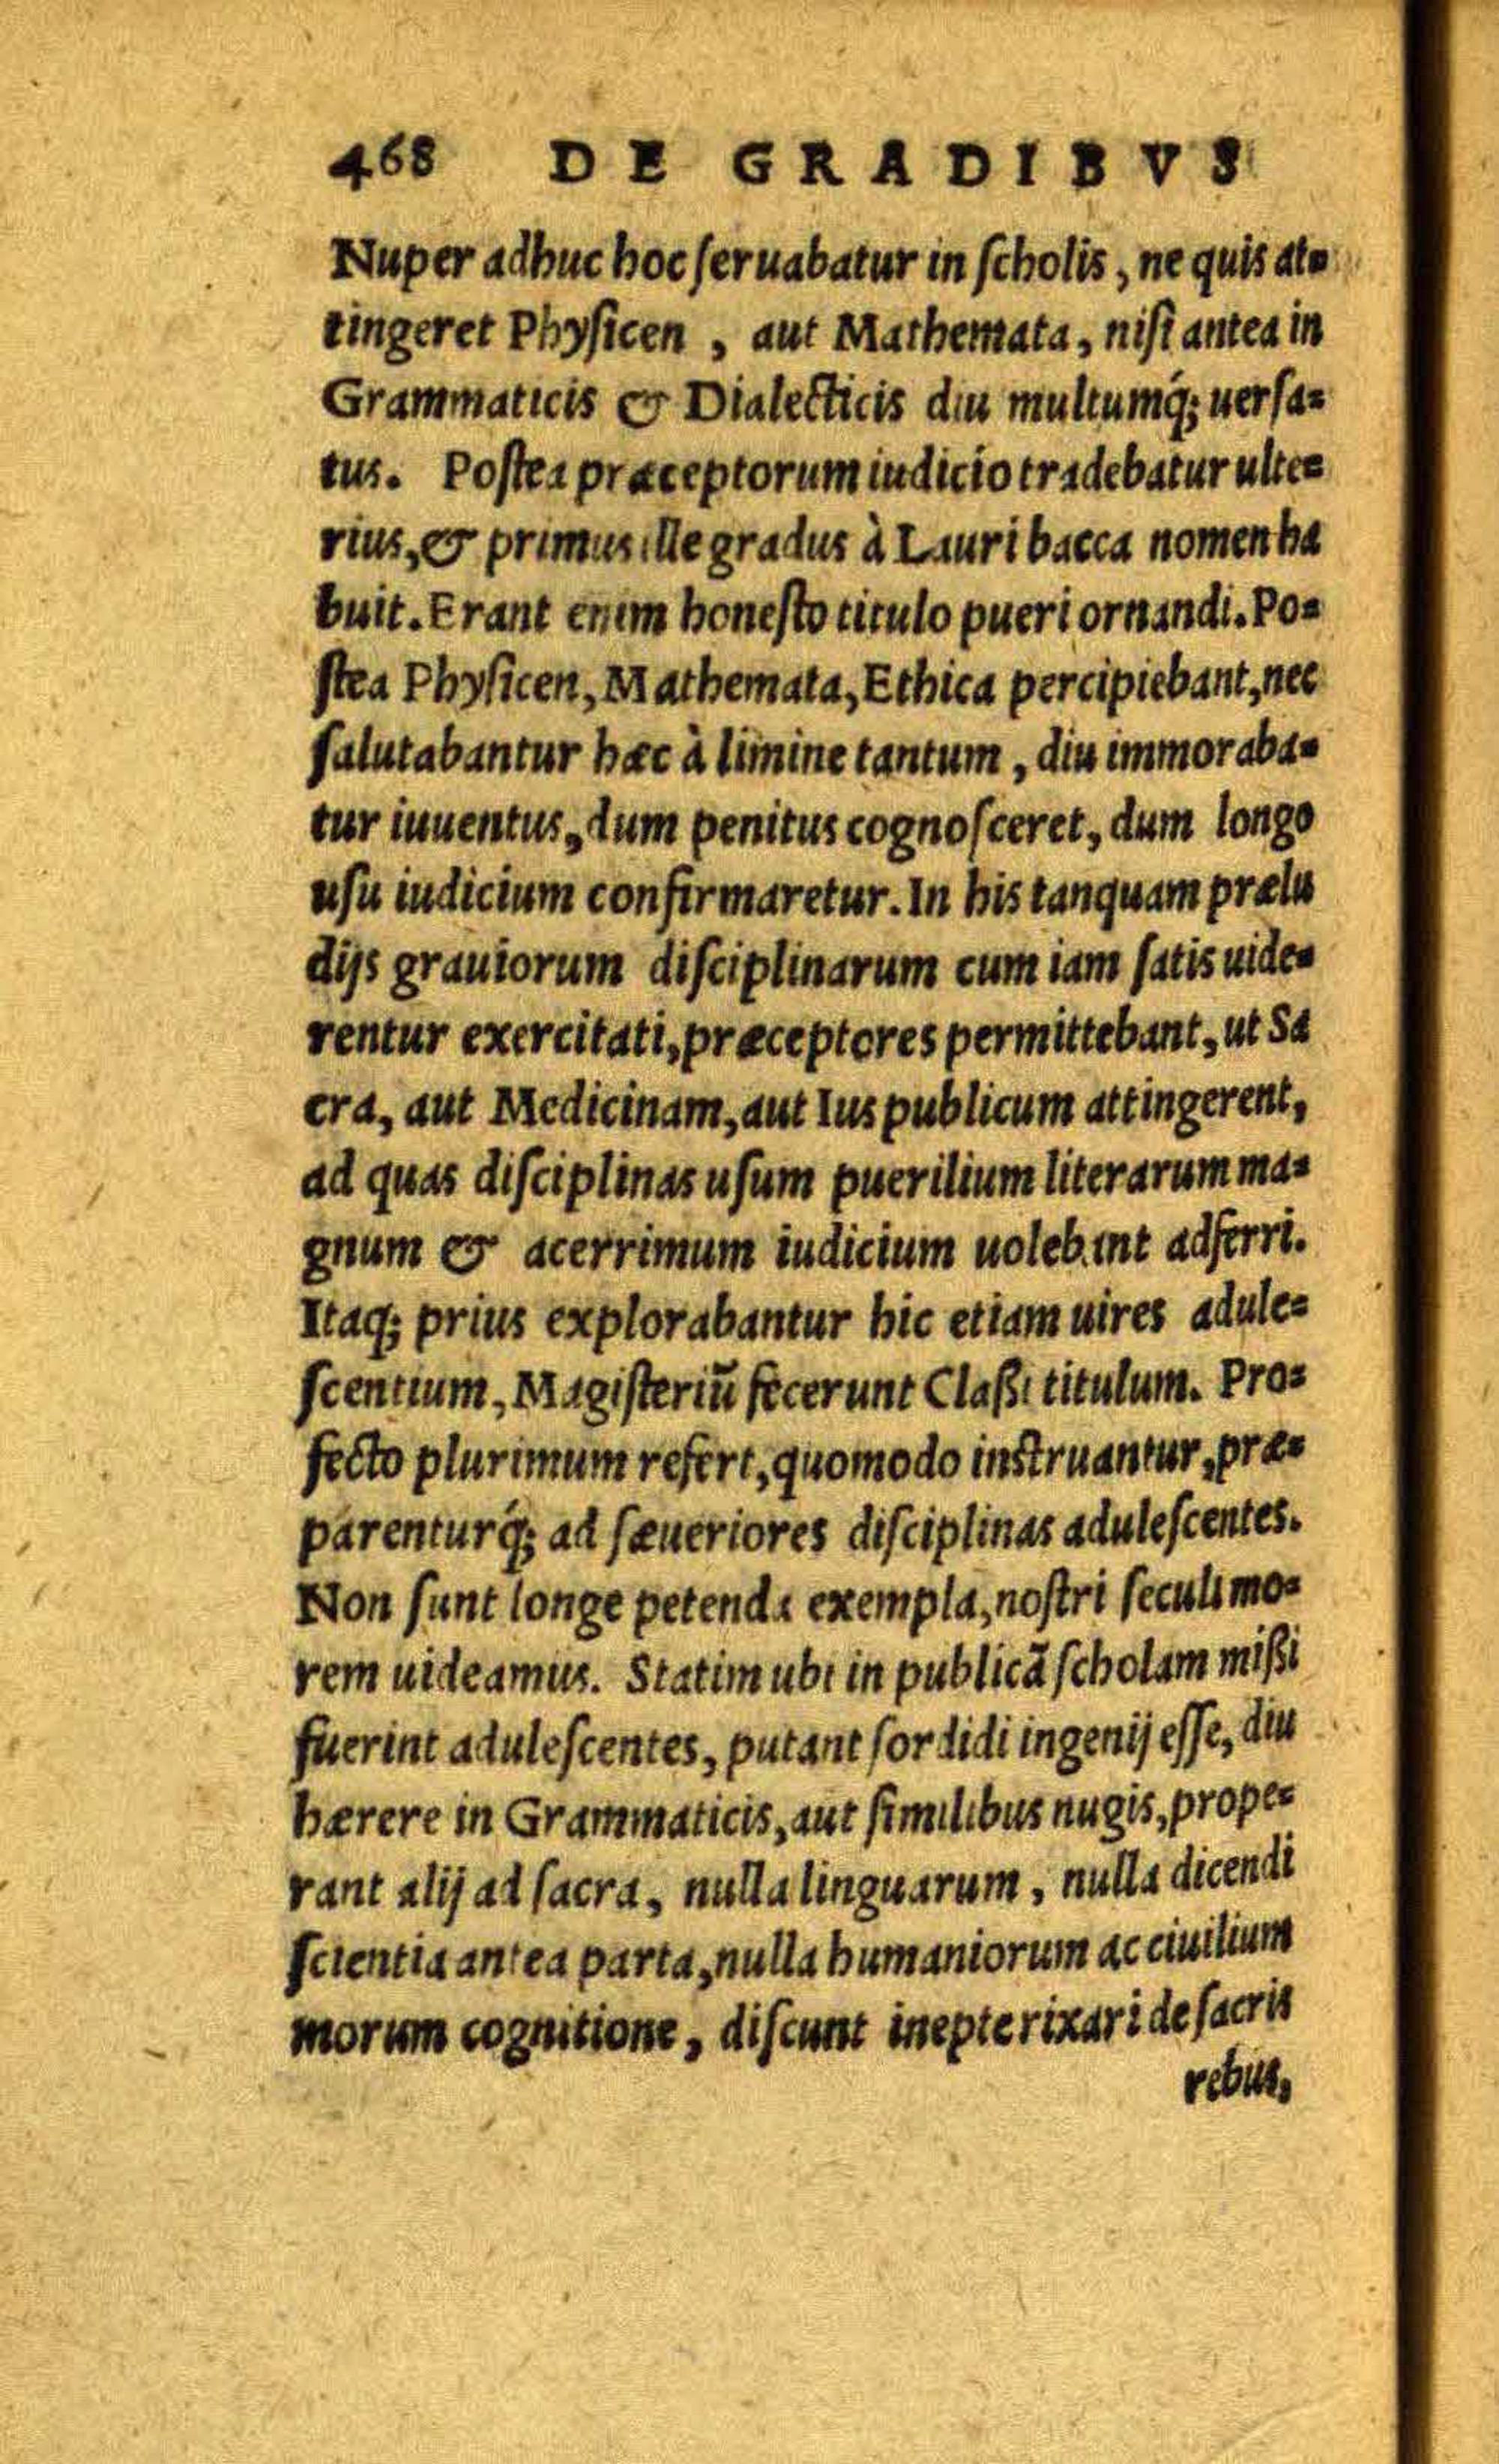 468 DE GRADIBVS
Nuper adhuc hoc ſeruabatur in ſcholis, ne quis at=
tingeret Phyſicen, aut Mathemata, niſi antea in
Grammaticis & Dialecticis diu multumq́; uerſa=
tus. Poſtea præceptorum iudicio tradebatur ulte=
rius, & primus ille gradus à Lauri bacca nomen ha
buit. Erant enim honeſto titulo pueri ornandi. Po=
ſtea Phyſicen, Mathemata, Ethica percipiebant, nec
ſalutabantur hæc à limine tantum, diu immoraba=
tur iuuentus, dum penitus cognoſceret, dum longo
uſu iudicium confirmaretur. In his tanquam prælu
dijs grauiorum diſciplinarum cum iam ſatis uide=
rentur exercitati, præceptores permittebant, ut Sa
cra, aut Medicinam, aut Ius publicum attingerent,
ad quas diſciplinas uſum puerilium literarum ma=
gnum & acerrimum iudicium uolebant adferri.
Itaq; prius explorabantur hic etiam uires adule=
ſcentium, Magiſteriū fecerunt Claßi titulum. Pro=
fecto plurimum refert, quomodo inſtruantur, præ=
parenturq́; ad ſæueriores diſciplinas aduleſcentes.
Non ſunt longe petenda exempla, noſtri ſeculi mo=
rem uideamus. Statim ubi in publicā ſcholam mißi
fuerint aduleſcentes, putant ſordidi ingenij eſſe, diu
hærere in Grammaticis, aut ſimilibus nugis, prope=
rant alij ad ſacra, nulla linguarum, nulla dicendi
ſcientia antea parta, nulla humaniorum ac ciuilium
morum cognitione, diſcunt inepte rixari de ſacris
rebus,